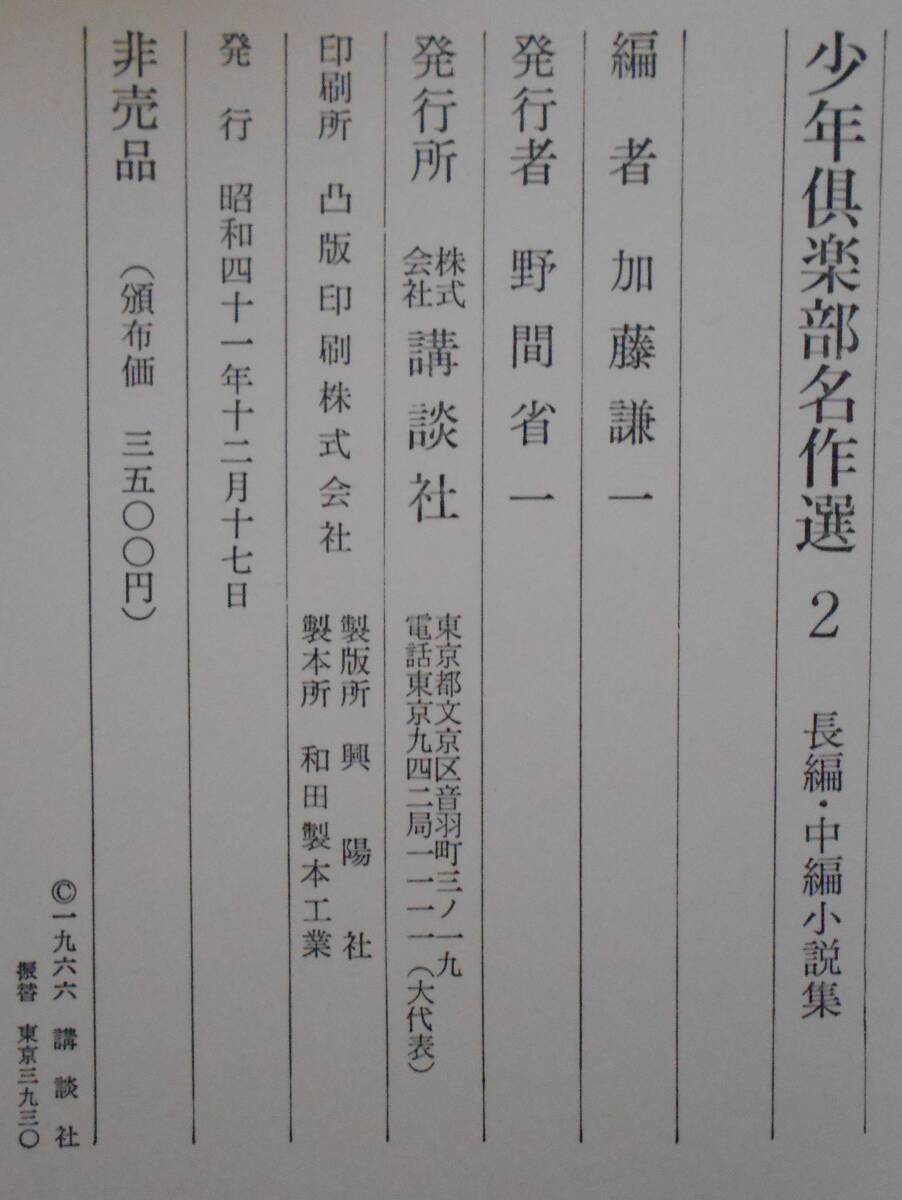 少年倶楽部名作選 2 長編・中編小説集
編者 加藤謙一
発行者 野間省一
発行所 株式会社 講談社
東京都文京区音羽町三ノ一九
電話東京九四二局一一一一(大代表)
印刷所 凸版印刷株式会社
製版所 興陽社
製本所 和田製本工業
発行 昭和四十一年十二月十七日
非売品 (頒布価 三五〇〇円)
©一九六六 講談社
振替 東京三九三〇